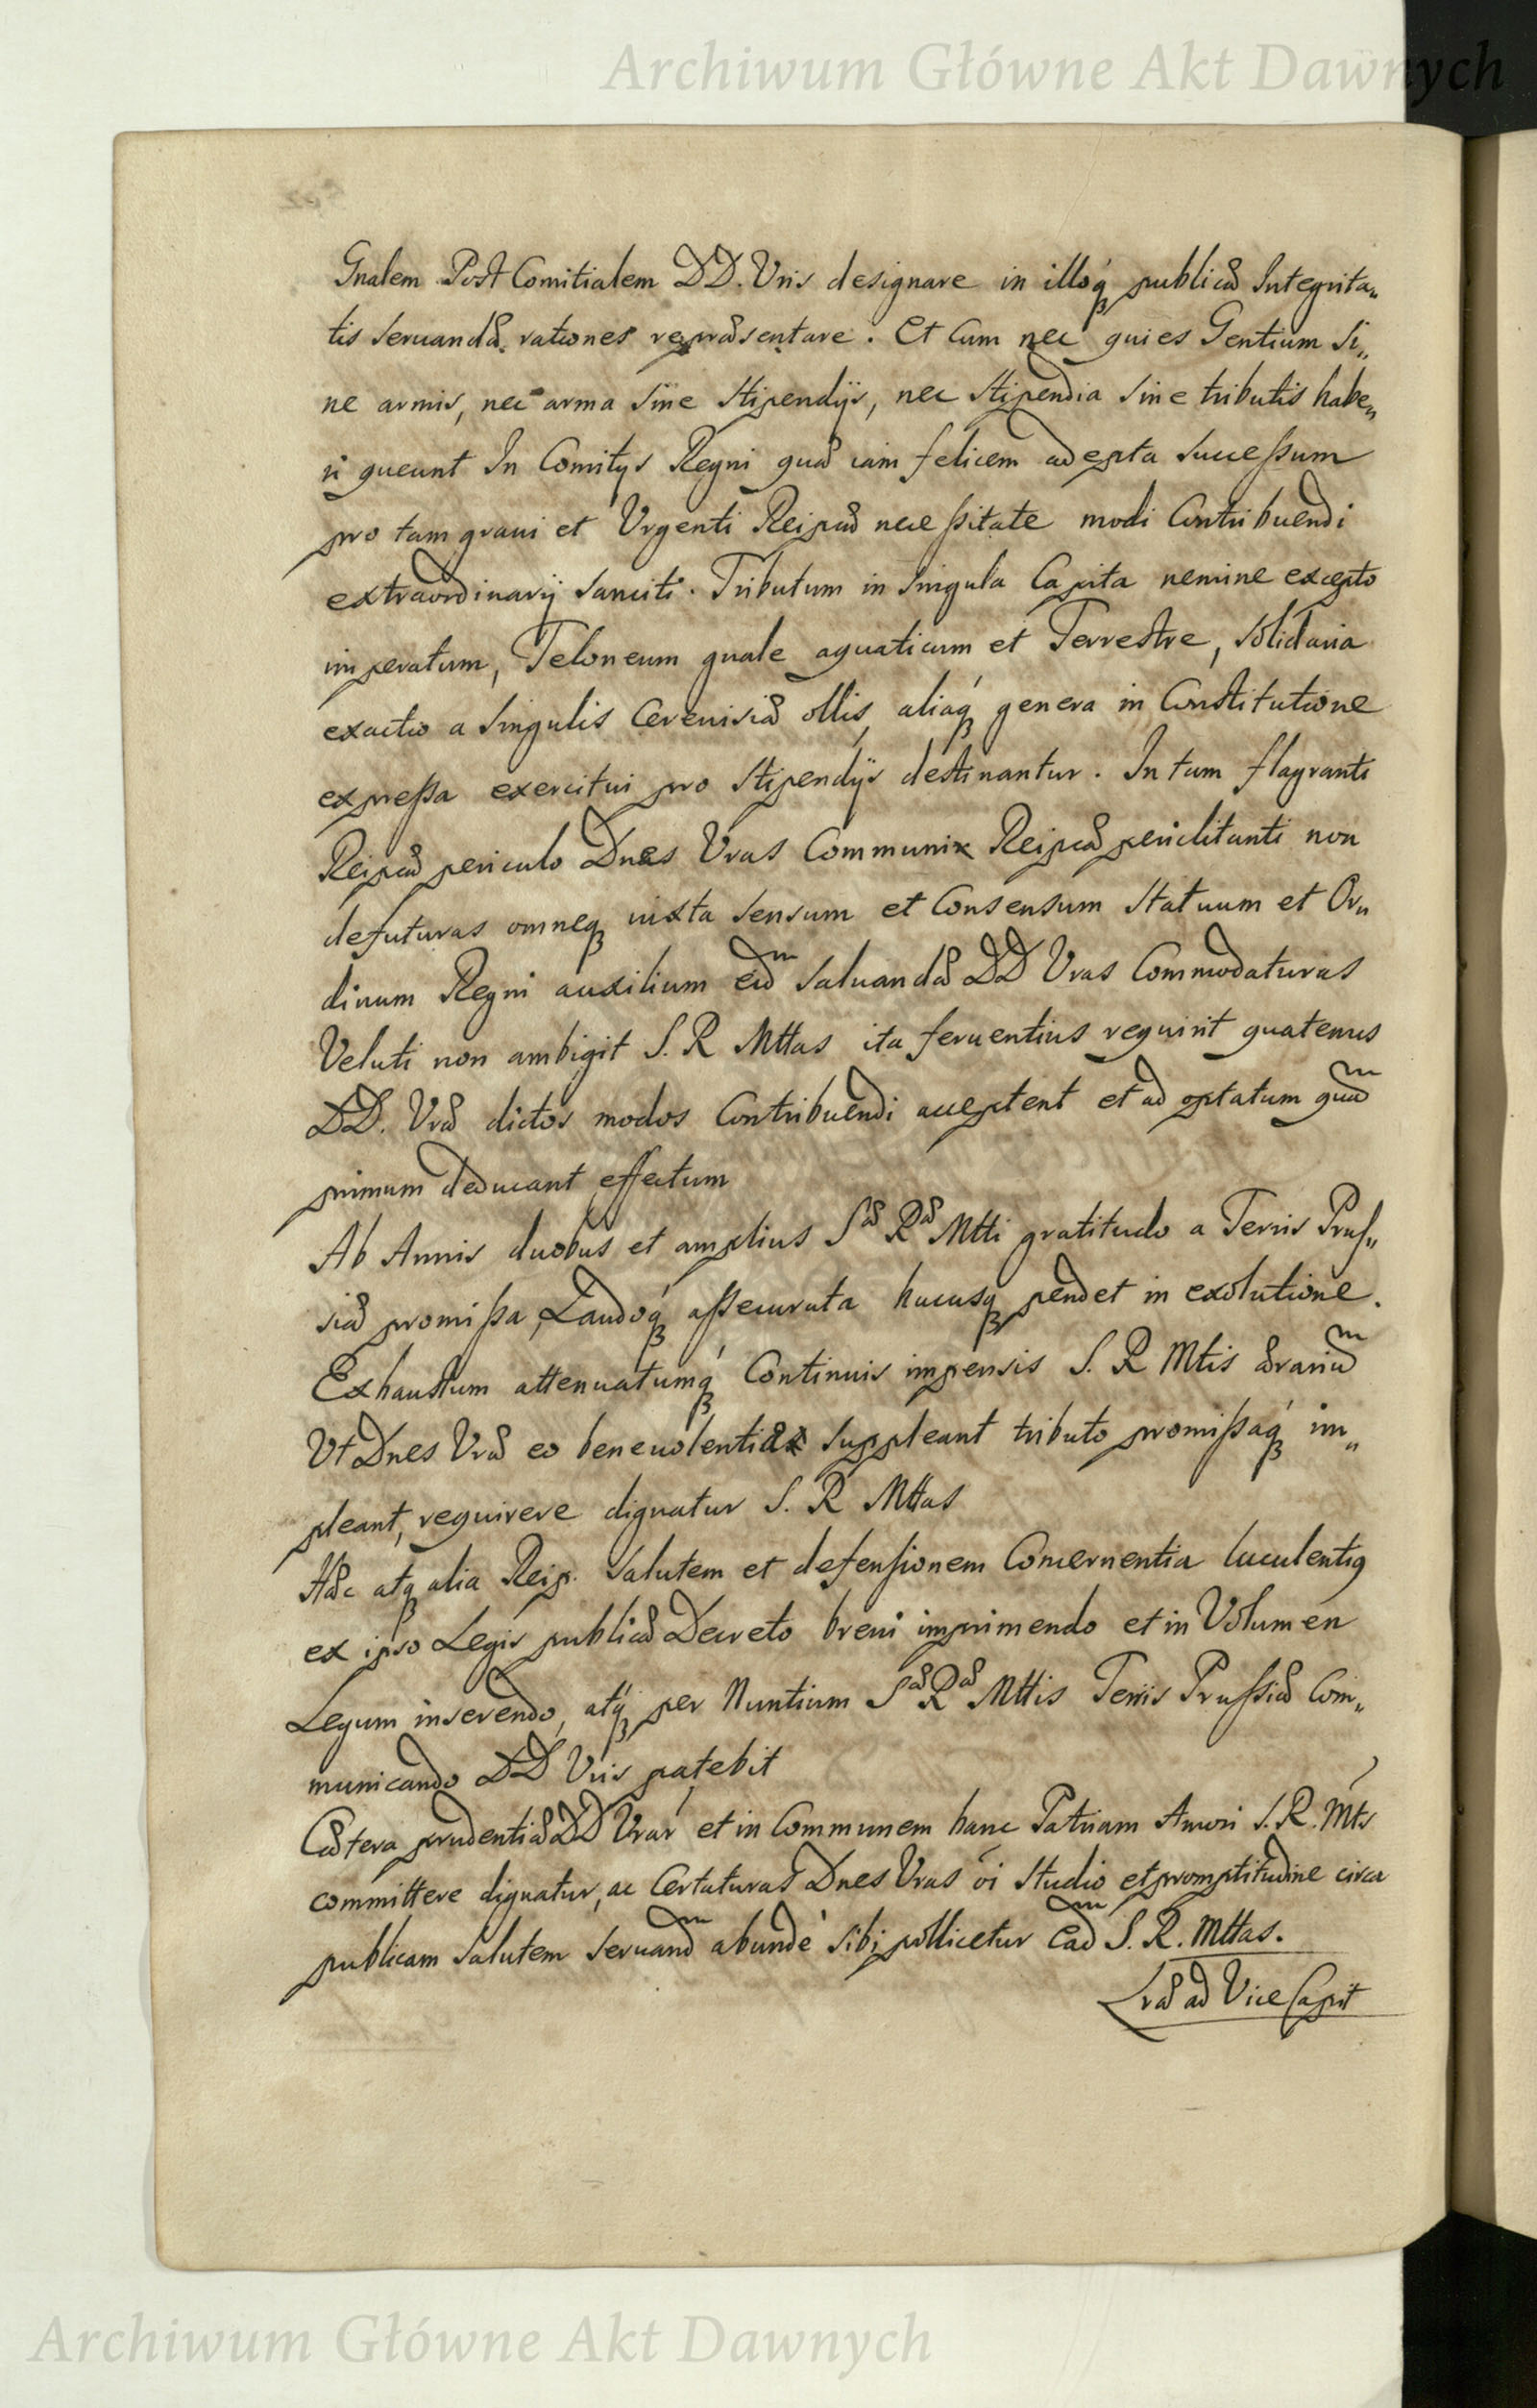 Archiwum Główne Akt Dawnych
Gnalem Post Comitialem DD. Vris designare in illoq; publicæ Integrita„
tis seruandæ rationes repræsentare. Et Cum nec quies Gentium Si„
ne armis, nec arma sine stipendijs, nec stipendia sine tributis habe„
ri queunt In Comitys Regni quæ iam felicem adepta successum
pro tam graui et Vrgenti Reipcæ necessitate modi Contribuendi
extraordinarij sanciti. Tributum in singula Capita nemine excepto
imperatum, Teloneum quale aquaticum et Terrestre, solidaria
exactio a singulis Cereuisiæ ollis, aliaq; genera in Constitutione
expressa exercitui pro stipendijs destinantur. In tam flagranti
Reipcæ periculo Dnes Vras Communi Reipcæ periclitanti non
defuturas omneq; iuxta sensum et Consensum Statuum et Or„
dinum Regni auxilium eidm saluandæ DD Vras Commodaturas
Veluti non ambigit S. R Mttas ita feruentius requirit quatenus
DD. Vræ dictos modos Contribuendi acceptent et ad optatum quam
primum deducant effectum
Ab Annis duobus et amplius Sæ Ræ Mtti gratitudo a Terris Prus„
siæ promissa, Laudoq; assecurata hucusq; pendet in exolutione.
Exhaustum attenuatumq; Continuis impensis S. R Mtis ærarium
Vt Dnes Vræ eo beneuolentiæ suppleant tributo promissaq; im„
pleant, requirere dignatur S. R Mttas
Hæc atq; alia Reip. salutem et defensionem Concernentia luculentiq
ex ipso Legis publicæ Decreto breui imprimendo et in Volumen
Legum inserendo, atq; per Nuntium Sæ Ræ Mttis Terris Prussiæ Com„
municando DD Vris patebit
Cætera prudentiæ DD Vrar et in Communem hanc Patriam Amori S. R. Mts
committere dignatur, ac Certaturas Dnes Vras oi studio et promptitudine circa
publicam salutem seruandm abundè sibi pollicetur eadm S. R. Mttas.
Lræ ad Vice Capit
Archiwum Główne Akt Dawnych